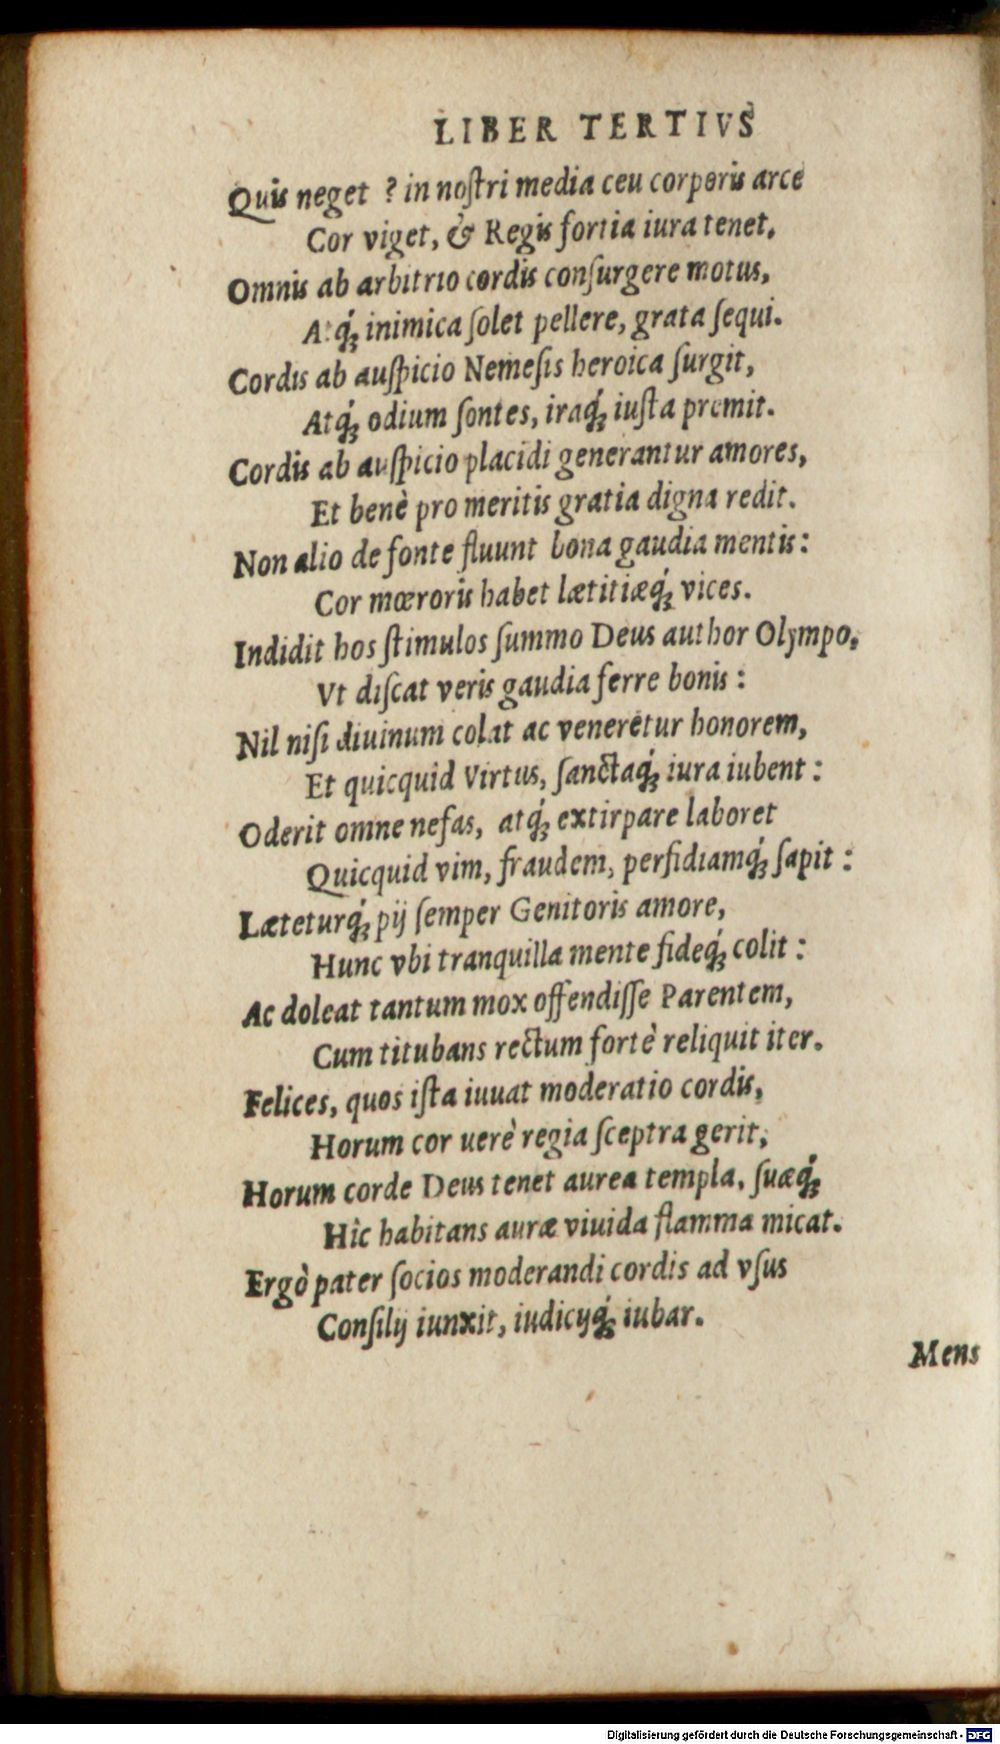 LIBER TERTIVS
Quis neget ? in noſtri media ceu corporis arce
Cor viget, & Regis fortia iura tenet,
Omnis ab arbitrio cordis conſurgere motus,
Atq́; inimica ſolet pellere, grata ſequi.
Cordis ab auſpicio Nemeſis heroica ſurgit,
Atq́; odium ſontes, iraq́; iuſta premit.
Cordis ab auſpicio placidi generantur amores,
Et benè pro meritis gratia digna redit.
Non alio de fonte fluunt bona gaudia mentis:
Cor mœroris habet lætitiæq́; vices.
Indidit hos ſtimulos ſummo Deus author Olympo,
Vt diſcat veris gaudia ferre bonis:
Nil niſi diuinum colat ac veneretur honorem,
Et quicquid Virtus, ſanctaq́; iura iubent:
Oderit omne nefas, atq́; extirpare laboret
Quicquid vim, fraudem, perfidiamq́; ſapit:
Læteturq́; pij ſemper Genitoris amore,
Hunc vbi tranquilla mente fideq́; colit:
Ac doleat tantum mox offendiſſe Parentem,
Cum titubans rectum fortè reliquit iter.
Felices, quos iſta iuuat moderatio cordis,
Horum cor uerè regia ſceptra gerit,
Horum corde Deus tenet aurea templa, ſuæq́;
Hîc habitans auræ viuida flamma micat.
Ergò pater ſocios moderandi cordis ad vſus
Conſilij iunxit, iudicijq́; iubar.
Mens
Digitalisierung gefördert durch die Deutsche Forschungsgemeinschaft - DFG